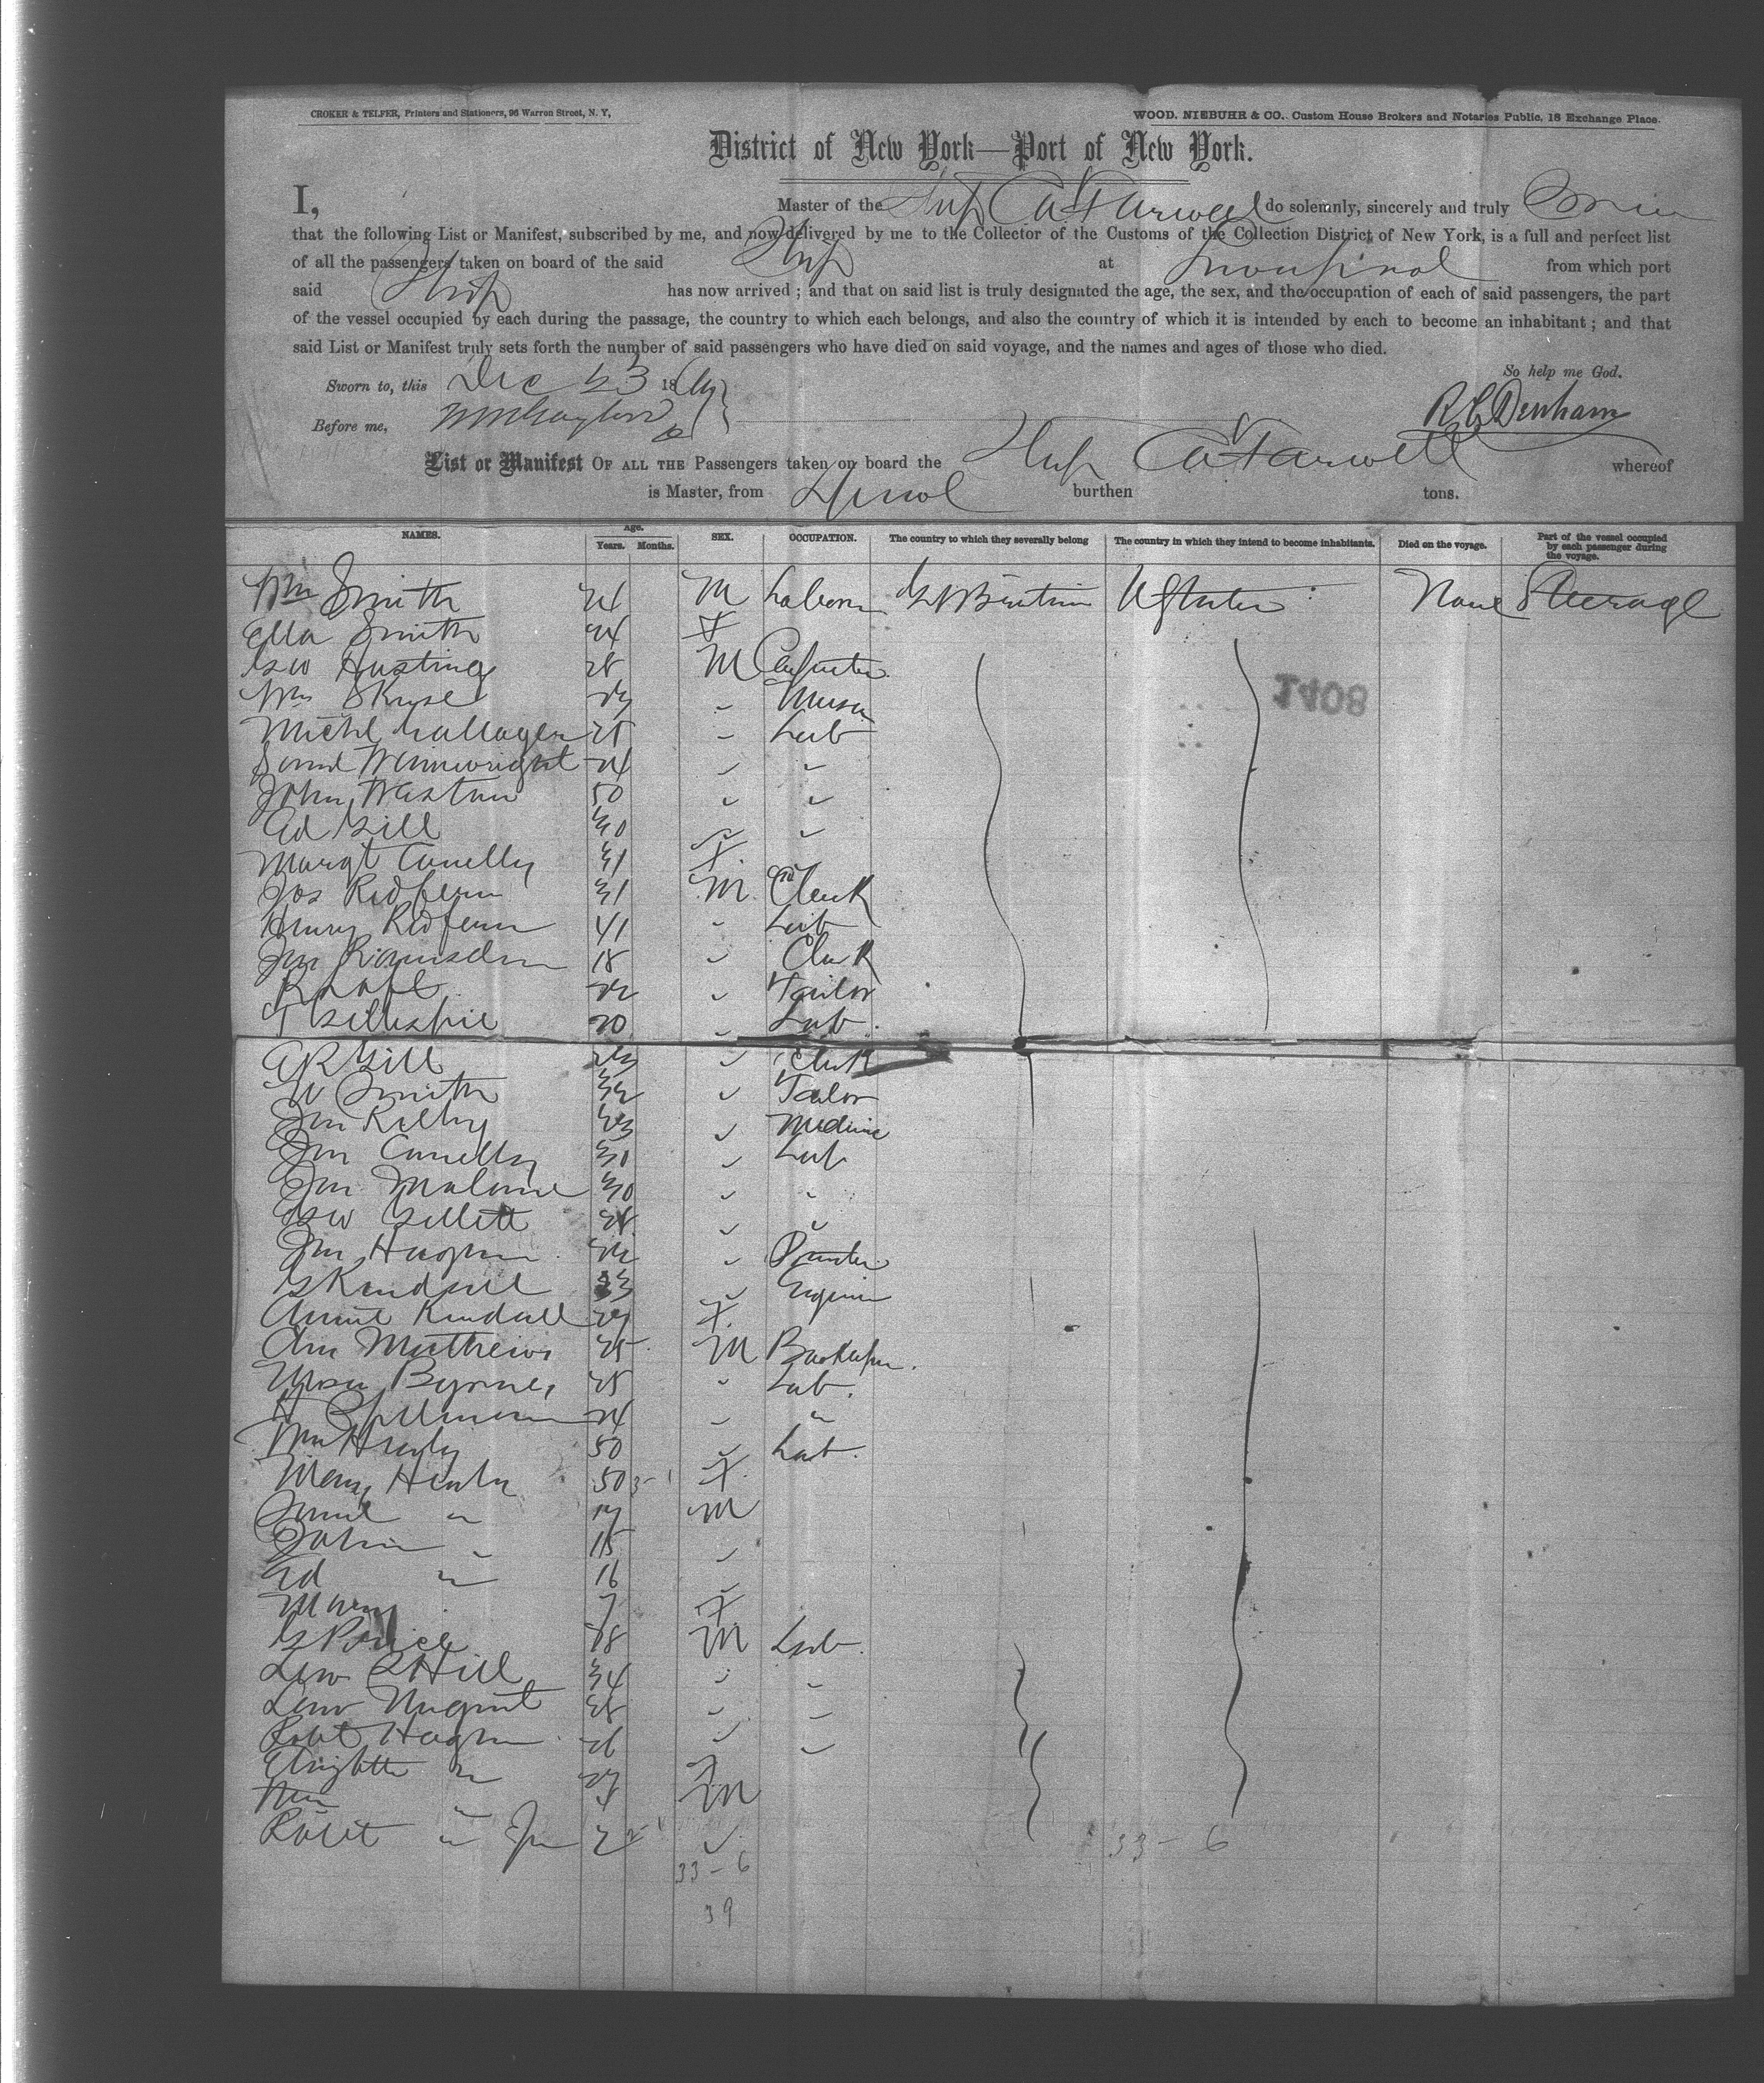 CROKER & TELFER, Printers and Stationers, 96 Warren Street, N. Y,
WOOD, NIEBUHR & CO. Custom House Brokers and Notaries Public, 18 Exchange Place.
District of New York—Port of New York.
I, Master of the Ship CA Farwell do solemnly, sincerely and truly
that the following List or Manifest, subscribed by me, and now delivered by me to the Collector of the Customs of the Collection District of New York, is a full and perfect list
of all the passengers taken on board of the said Ship at Liverpool from which port
said Ship has now arrived ; and that on said list is truly designated the age, the sex, and the occupation of each of said passengers, the part
of the vessel occupied by each during the passage, the country to which each belongs, and also the country of which it is intended by each to become an inhabitant ; and that
said List or Manifest truly sets forth the number of said passengers who have died on said voyage, and the names and ages of those who died.
So help me God.
Sworn to, this Dec 23 18
R C Denham
Before me,
List or Manifest OF ALL THE Passengers taken on board the Ship CA Farwell whereof
is Master, from Lpool burthen tons.
NAMES. Age. Years. Months. SEX. OCCUPATION. The country to which they severally belong The country in which they intend to become inhabitants. Died on the voyage. Part of the vessel occupied by each passenger during the voyage.
Wm Smith 24 M Laborer Gt Britain U States None Steerage
Ella Smith 24 F
Geo Hastings 28 M Carpenter
1408
Wm Skuse "
Michl Gallagher 25 " Lab
Saml Wainwright 24 " "
John Weston 50 " "
Ed Gill 30 " "
Margt Conelly 31 F
Jos Redfern 31 M Clerk
Henry Redfern 41 " Lab
Jno 18 " Clerk
22 " Tailor
T Gillespie 20 " Lab
Gill " Clerk
W Smith 32 " Tailor
Jno Kelby " Medicine
Jno Conelly 30 " Lab
Jno Malone 30 " "
Geo Gillett " "
Jno Hagan 22 "
G Kendall 33 " Engineer
Annie Kendall F
Mathews 25 M Bookkeeper
Byrne 25 " Lab.
H 24 " "
Wm Healy 50 " Lab.
Mary Healy 50 F
Saml " M
John " 15 "
Ed " 16 "
Mary 7 F
G Price 18 M Lab.
Hill 34 " "
Nugent 28 " "
Robt Hagan 26 " "
" F
Wm " 4 M
Robt " Jnr 2 "
33 - 6
33 - 6
39